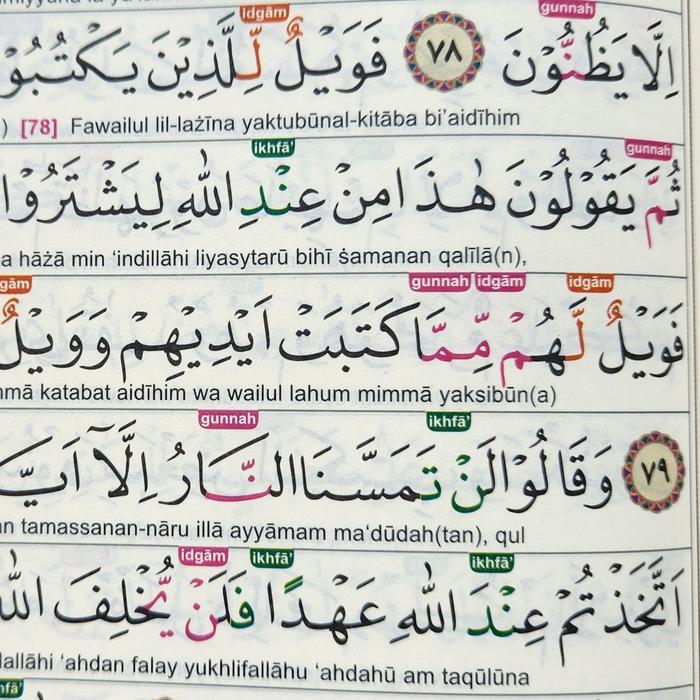 idgām gunnah
اِلَّا يَظُنُّوْنَ ٧٨ فَوَيْلٌ لِّلَّذِيْنَ يَكْتُبُوْ
) [78] Fawailul lil-lażīna yaktubūnal-kitāba bi'aidīhim
ikhfā' gunnah
ثُمَّ يَقُوْلُوْنَ هٰذَا مِنْ عِنْدِ اللّٰهِ لِيَشْتَرُوْا
a hāżā min 'indillāhi liyasytarū bihī ṡamanan qalīlā(n),
gām gunnah idgām idgām
فَوَيْلٌ لَّهُمْ مِّمَّا كَتَبَتْ اَيْدِيْهِمْ وَوَيْلٌ
mmā katabat aidīhim wa wailul lahum mimmā yaksibūn(a)
gunnah ikhfā'
٧٩ وَقَالُوْا لَنْ تَمَسَّنَا النَّارُ اِلَّآ اَيَّ
an tamassanan-nāru illā ayyāmam ma'dūdah(tan), qul
idgām ikhfā' ikhfā'
اَتَّخَذْتُمْ عِنْدَ اللّٰهِ عَهْدًا فَلَنْ يُّخْلِفَ اللّٰ
dallāhi 'ahdan falay yukhlifallāhu 'ahdahū am taqūlūna
hfā'